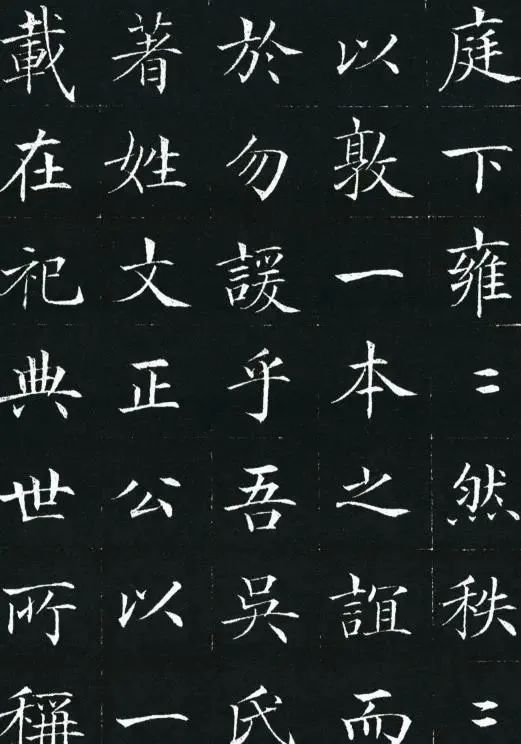 庭下雍二然秩二
以敦一本之誼而
於勿諼乎吾吳氏
著姓文正公以一
載在祀典世所稱